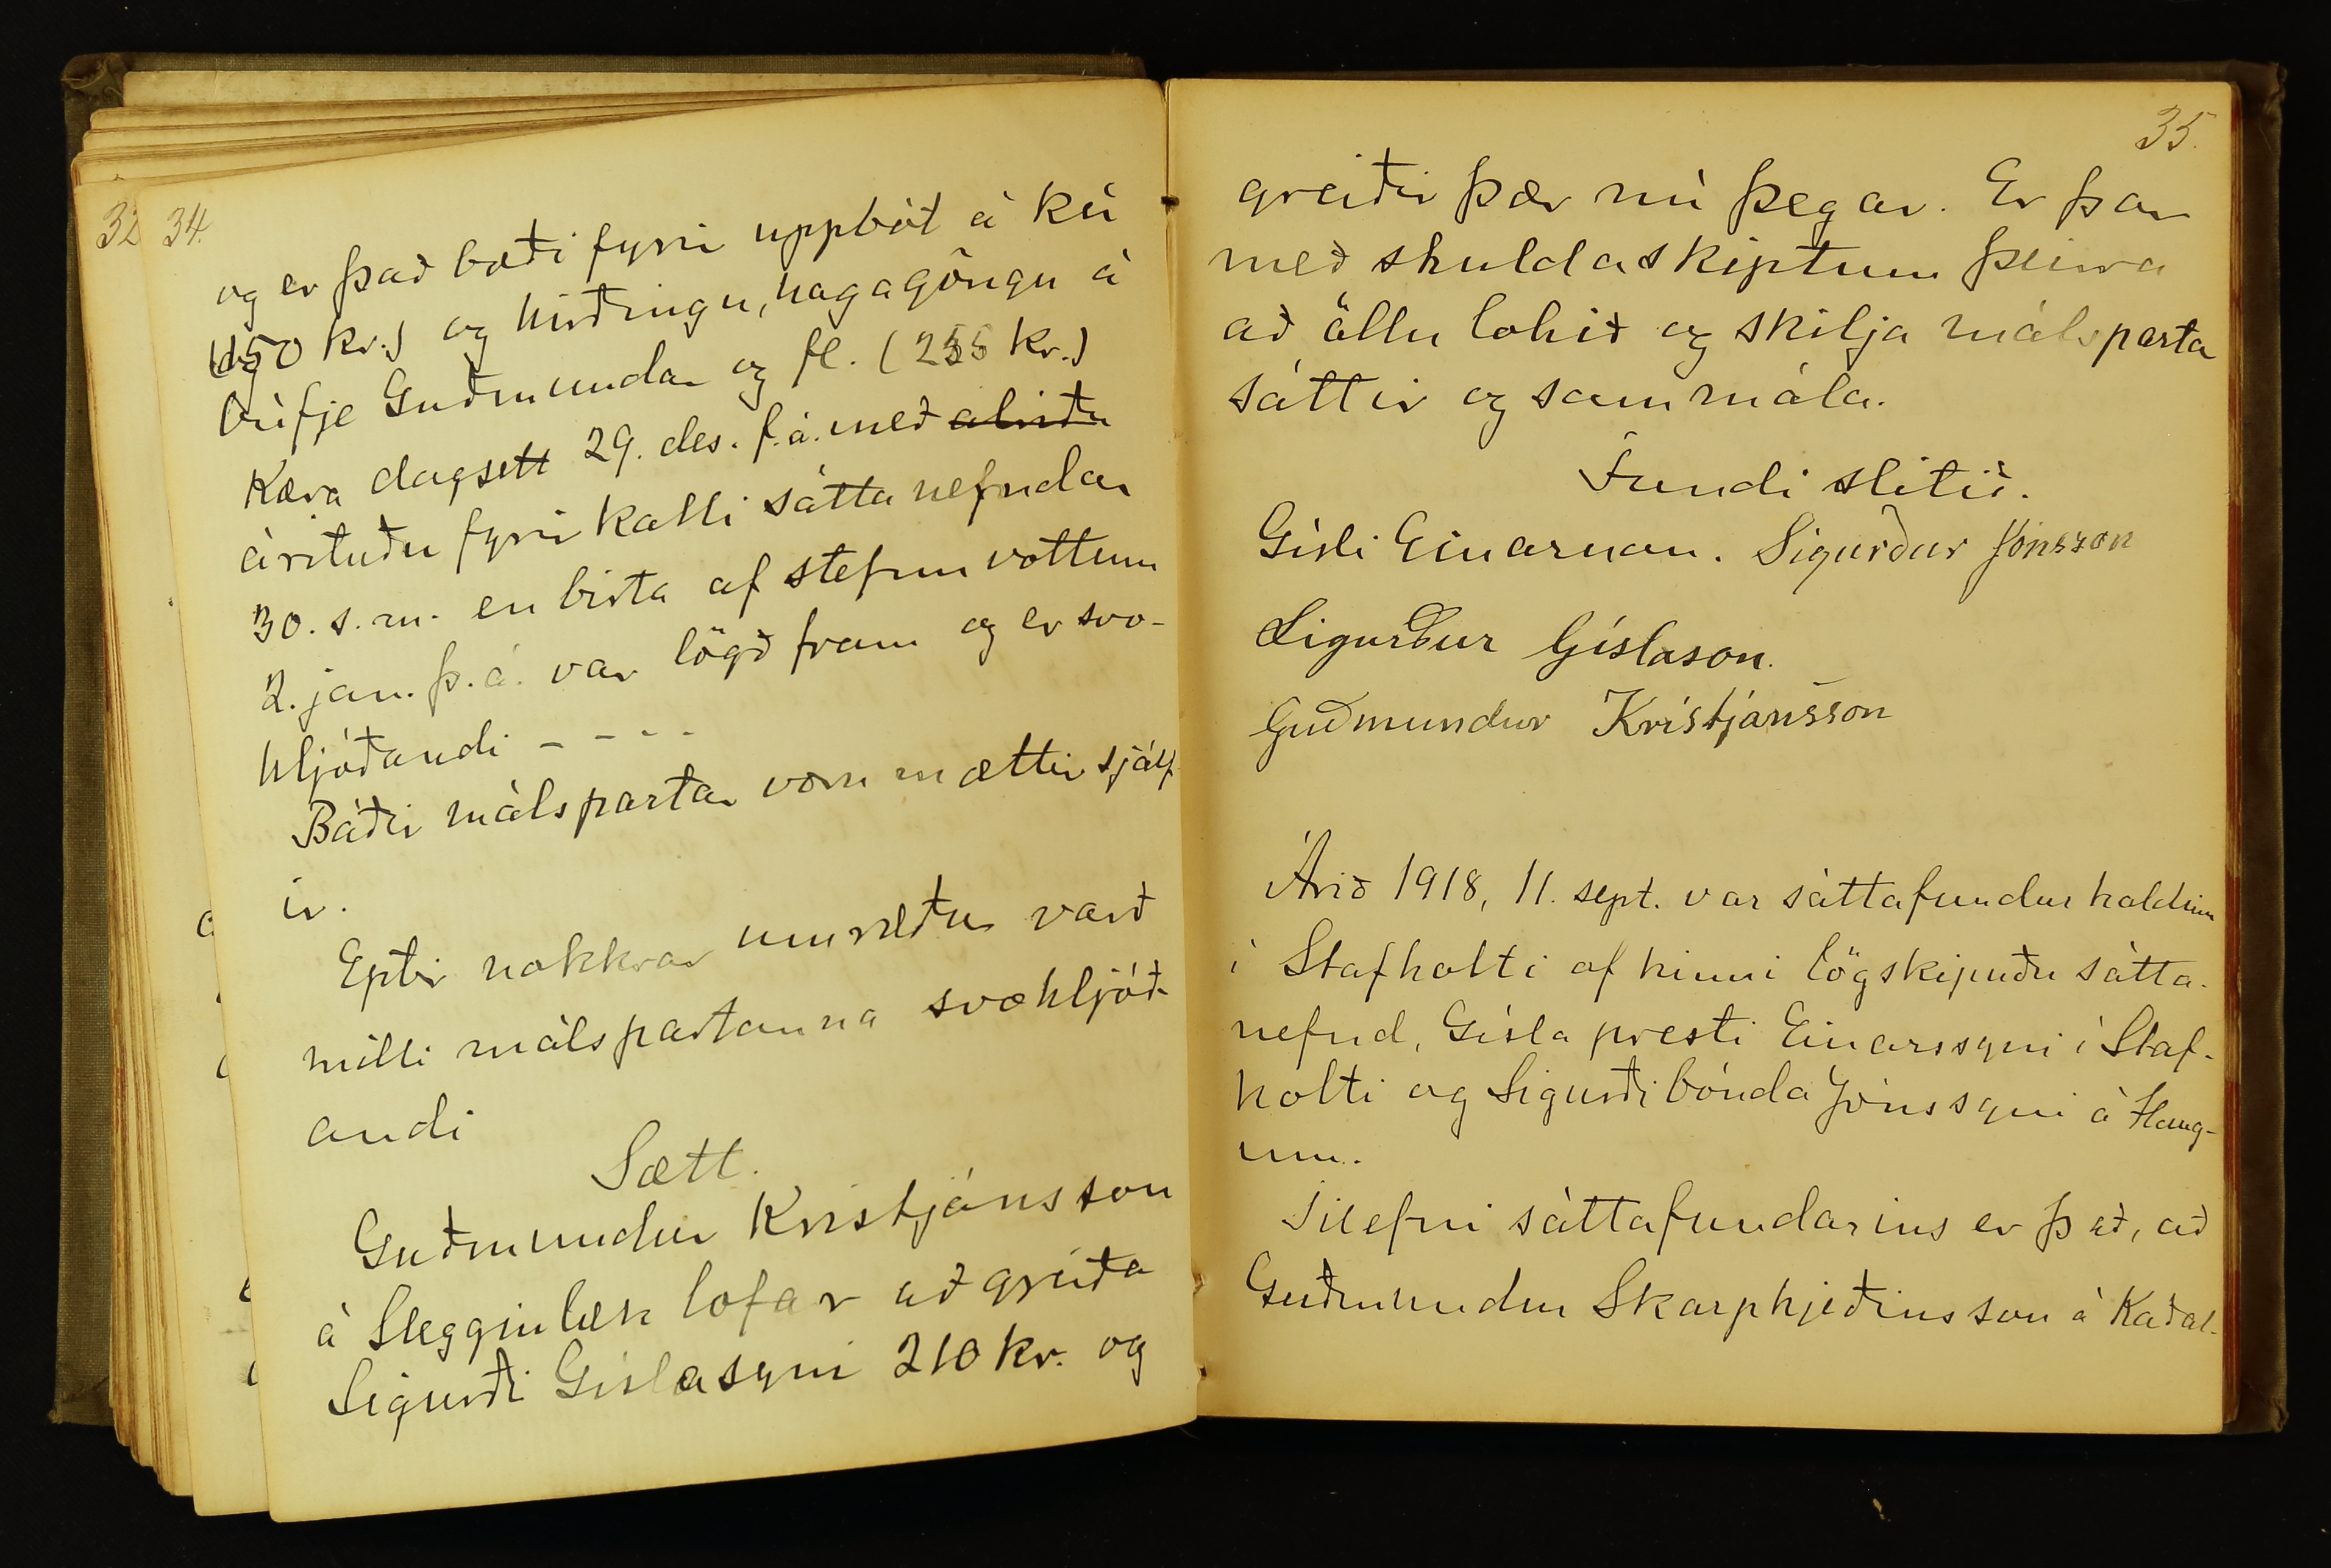 32
34.
og er það bæði fyrir uppbót á kú
(150 kr.) og hirðingu, hagagöngu á
búfje Guðmundar og fl. (255 kr.)
Kæra dagsett 29. des. f.á. með
árituðu fyrirkalli sáttanefndar
30. s.m. en birta af stefnuvottum
2. jan. þ.á. var lögð fram og er svo-
hljóðandi - - - -
Báðir málspartar voru mættir sjálf-
ir.
Eptir nokkrar umræður varð
milli málspartanna svohljóð-
andi
Sætt.
Guðmundur Kristjánsson
á Sleggjulæk lofar að greiða
Sigurði Gíslasyni 210 kr. og
35.
greiðir þær nú þegar. Er þar
með skuldaskiptum þeirra
að öllu lokið og skilja málspartar
sáttir og sammála.
Fundi slitið.
Gísli Einarsson. Sigurður Jónsson
Sigurður Gíslason.
Guðmundur Kristjánsson
Árið 1918, 11. sept. var sáttafundur haldinn
í Stafholti af hinni lögskipuðu sátta-
nefnd, Gísla presti Einarssyni í Staf-
holti og Sigurði bónda Jónssyni á Haug-
um.
Tilefni sáttafundarins er það, að
Guðmundur Skarphjeðinsson á Kaðal-